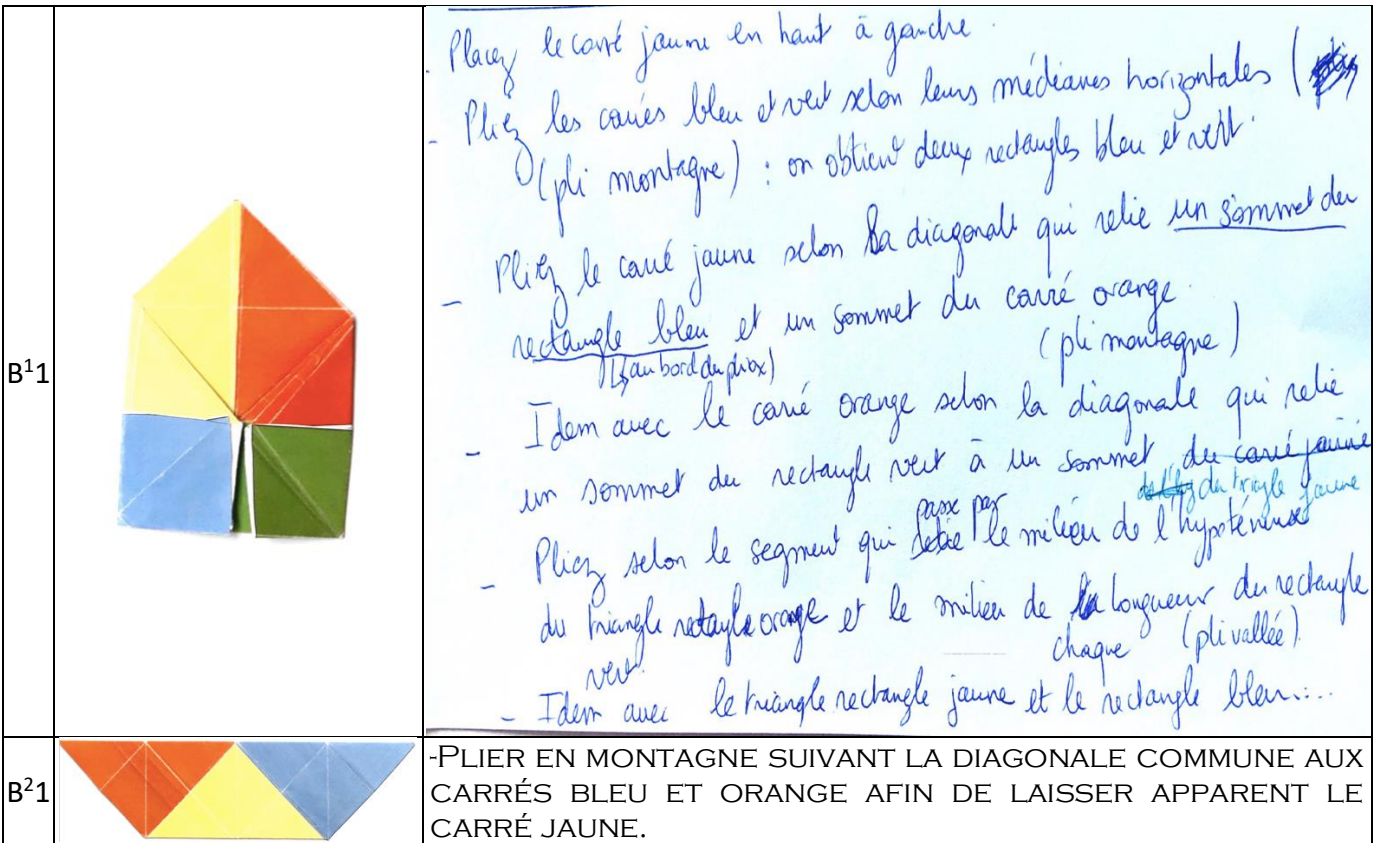 B¹1
- Placez le carré jaune en haut à gauche.
- Pliez les carrés bleu et vert selon leurs médianes horizontales (
(pli montagne) : on obtient deux rectangles bleu et vert.
- Pliez le carré jaune selon la diagonale qui relie un sommet du
rectangle bleu et un sommet du carré orange.
(au bord du
(pli montagne)
- Idem avec le carré orange selon la diagonale qui relie
un sommet du rectangle vert à un sommet du carré jaune
du triangle jaune
- Pliez selon le segment qui passe par le milieu de l'hypoténuse
du triangle rectangle orange et le milieu de la longueur du rectangle
vert. chaque (pli vallée).
- Idem avec le triangle rectangle jaune et le rectangle bleu....
B²1
-PLIER EN MONTAGNE SUIVANT LA DIAGONALE COMMUNE AUX
CARRÉS BLEU ET ORANGE AFIN DE LAISSER APPARENT LE
CARRÉ JAUNE.